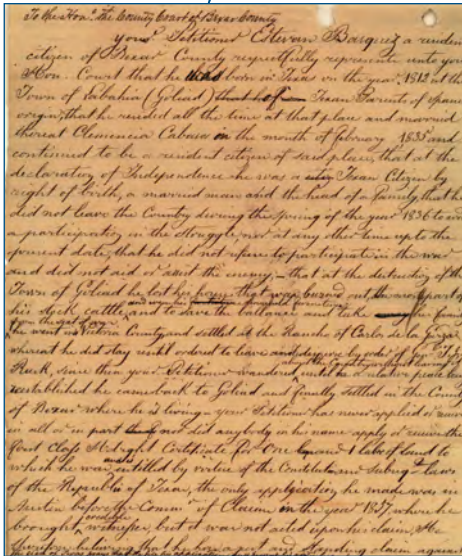 To the Hon. the County Court of Bexar County
your Petitioner Estevan Basquez a residen
citizen of Bexar County respectfully represents unto your
Hon. Court that he was born in Texas on the year 1812 at the
Town of Labahia (Goliad) that of Texan Parents of Spani
origin, that he resided all the time at that place and married
thereat Clemencia Cabasa in the month of february 1835 and
continued to be a resident citizen of said place, that at the
declaration of Independence he was a Texan Citizen by
right of birth, a married man and the head of a family, that he
did not leave the Country during the Spring of the year 1836 to avoi
a participation in the struggle, nor at any other time up to the
present date, that he did not refuse to participate in the war
and did not aid or assist the enemy, that at the destruction of the
Town of Goliad he lost his house that was burned out, part of
his stock cattle, and to save the ballance and take
he went in Victoria County and settled at the Rancho of Carlos de la Garza
whereat he did stay until ordered to leave by order of Gen.
Rusk, since then your Petitioner wandered, until relative peace
reestablished he came back to Goliad and finally settled in the Count
of Bexar where he is living - your Petitioner has never applied or
in all or in part nor did anybody in his name apply or receive the
first Class Hdright Certificate for One League and 1 labor of land to
which he was entitled by virtue of the Constitution and Subsqt laws
of the Republic of Texas, the only application he made was in
Austin before the Comm. of Claims in the year 1857, where he
brought witnesses, but it was not acted upon his claim, He
therefore believing that he has a just and claim against